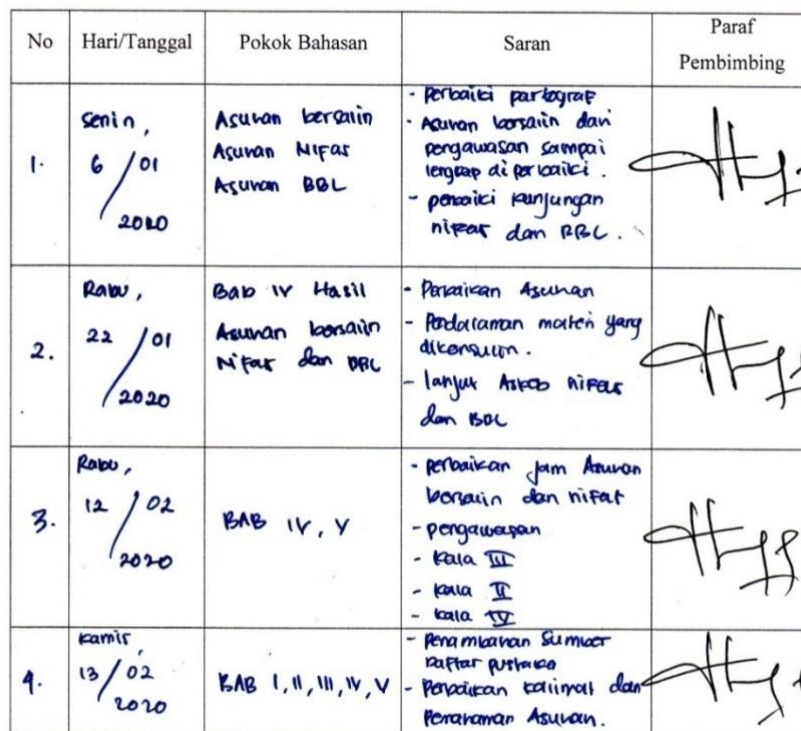 No Hari/Tanggal Pokok Bahasan Saran Paraf
Pembimbing
1. Senin,
6 / 01
2020
Asuhan bersalin
Asuhan Nifas
Asuhan BBL
- Perbaiki partograf
- Asuhan bersalin dari
pengawasan sampai
lengkap di perbaiki.
- perbaiki kunjungan
nifas dan BBL.
2. Rabu,
22 / 01
2020
Bab IV Hasil
Asuhan bersalin
Nifas dan BBL
- Perbaikan Asuhan
- Pendalaman materi yang
dikonsulkan.
- lanjut Askeb nifas
dan BBL
3. Rabu,
12 / 02
2020
BAB IV, V
- perbaikan jam Asuhan
bersalin dan nifas
- pengawasan
- Kala III
- kala II
- kala IV
4. Kamis,
13 / 02
2020
BAB I, II, III, IV, V
- Penambahan Sumber
Daftar pustaka
- Perbaikan kalimat dan
Pemahaman Asuhan.